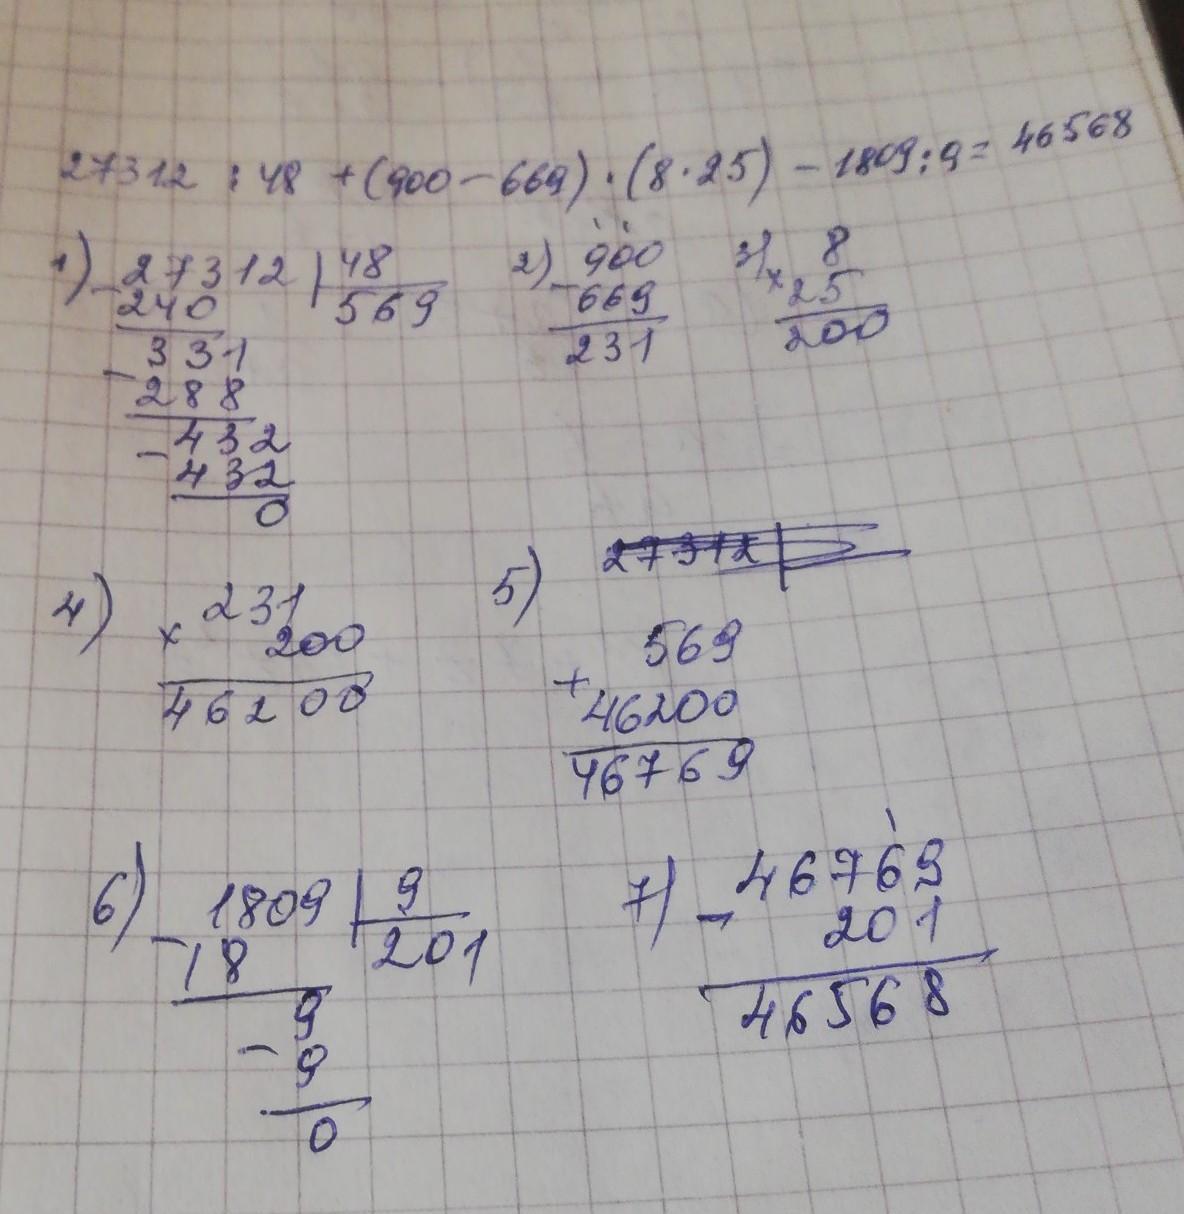 27312 : 48 + (900 - 669) · (8 · 25) - 1809 : 9 = 46568
1) - 27312 | 48
240 569
- 331
288
- 432
432
0
2) - 900
669
231
3) × 8
25
200
4) × 231
200
46200
5) 27312
569
+ 46200
46769
6) - 1809 | 9
18 201
9
- 9
0
7) - 46769
201
46568